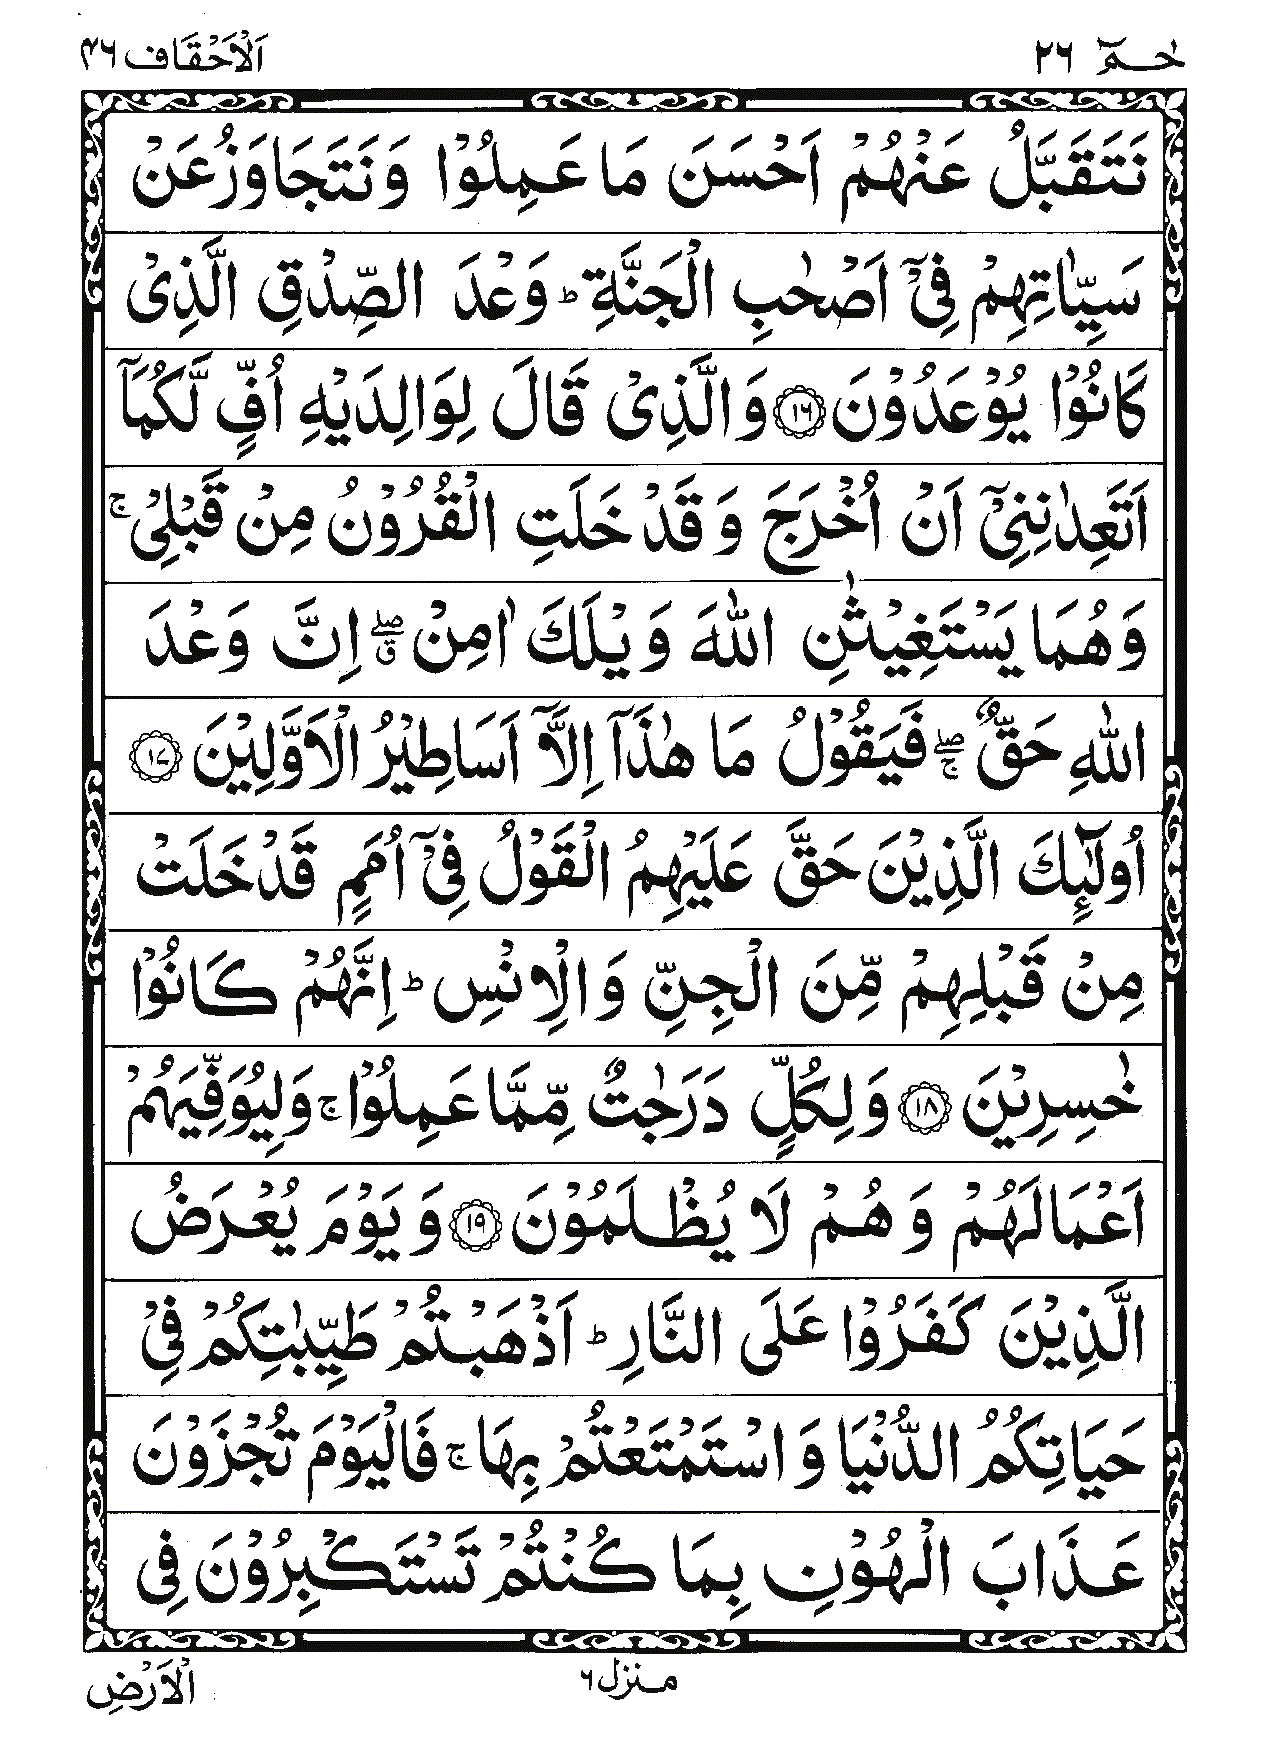 حٰمٓ ٢٦
اَلْاَحْقَاف ٤٦
نَتَقَبَّلُ عَنْهُمْ اَحْسَنَ مَا عَمِلُوْا وَنَتَجَاوَزُ عَنْ
سَيِّاٰتِهِمْ فِىْٓ اَصْحٰبِ الْجَنَّةِ ؕ وَعْدَ الصِّدْقِ الَّذِىْ
كَانُوْا يُوْعَدُوْنَ ۝١٦ وَالَّذِىْ قَالَ لِوَالِدَيْهِ اُفٍّ لَّكُمَاۤ
اَتَعِدٰنِنِىْٓ اَنْ اُخْرَجَ وَقَدْ خَلَتِ الْقُرُوْنُ مِنْ قَبْلِىْ ۚ
وَهُمَا يَسْتَغِيْثٰنِ اللّٰهَ وَيْلَكَ اٰمِنْ ۖق اِنَّ وَعْدَ
اللّٰهِ حَقٌّ ۖۚ فَيَقُوْلُ مَا هٰذَاۤ اِلَّاۤ اَسَاطِيْرُ الْاَوَّلِيْنَ ۝١٧
اُولٰٓئِكَ الَّذِيْنَ حَقَّ عَلَيْهِمُ الْقَوْلُ فِىْٓ اُمَمٍ قَدْ خَلَتْ
مِنْ قَبْلِهِمْ مِّنَ الْجِنِّ وَالْاِنْسِ ؕ اِنَّهُمْ كَانُوْا
خٰسِرِيْنَ ۝١٨ وَلِكُلٍّ دَرَجٰتٌ مِّمَّا عَمِلُوْا ۚ وَلِيُوَفِّيَهُمْ
اَعْمَالَهُمْ وَهُمْ لَا يُظْلَمُوْنَ ۝١٩ وَيَوْمَ يُعْرَضُ
الَّذِيْنَ كَفَرُوْا عَلَى النَّارِ ؕ اَذْهَبْتُمْ طَيِّبٰتِكُمْ فِىْ
حَيَاتِكُمُ الدُّنْيَا وَاسْتَمْتَعْتُمْ بِهَا ۚ فَالْيَوْمَ تُجْزَوْنَ
عَذَابَ الْهُوْنِ بِمَا كُنْتُمْ تَسْتَكْبِرُوْنَ فِى
منزل ٦
الْاَرْضِ